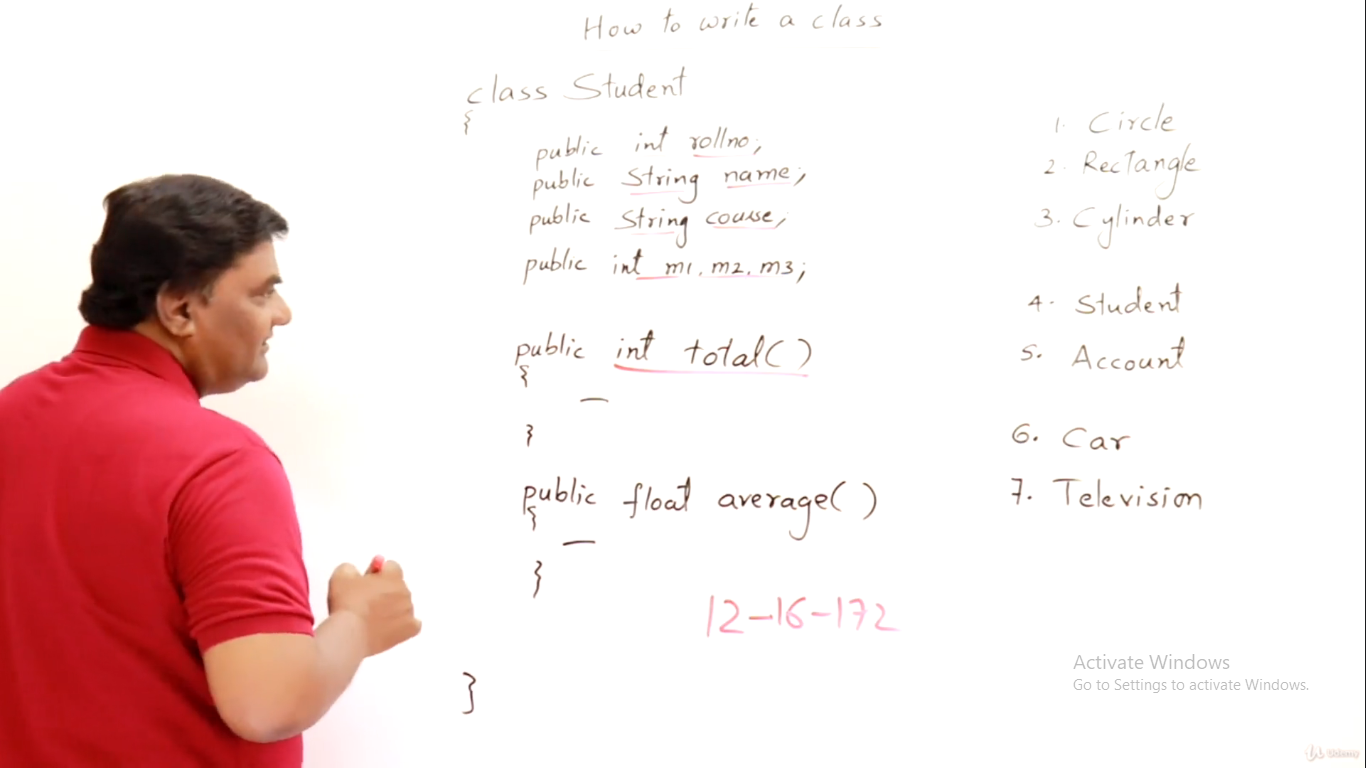 How to write a class
class Student
{
public int rollno;
public String name;
public String course;
public int m1, m2, m3;
public int total()
{
—
}
public float average()
{
—
}
12-16-172
}
1. Circle
2. Rectangle
3. Cylinder
4. Student
5. Account
6. Car
7. Television
Activate Windows
Go to Settings to activate Windows.
Udemy